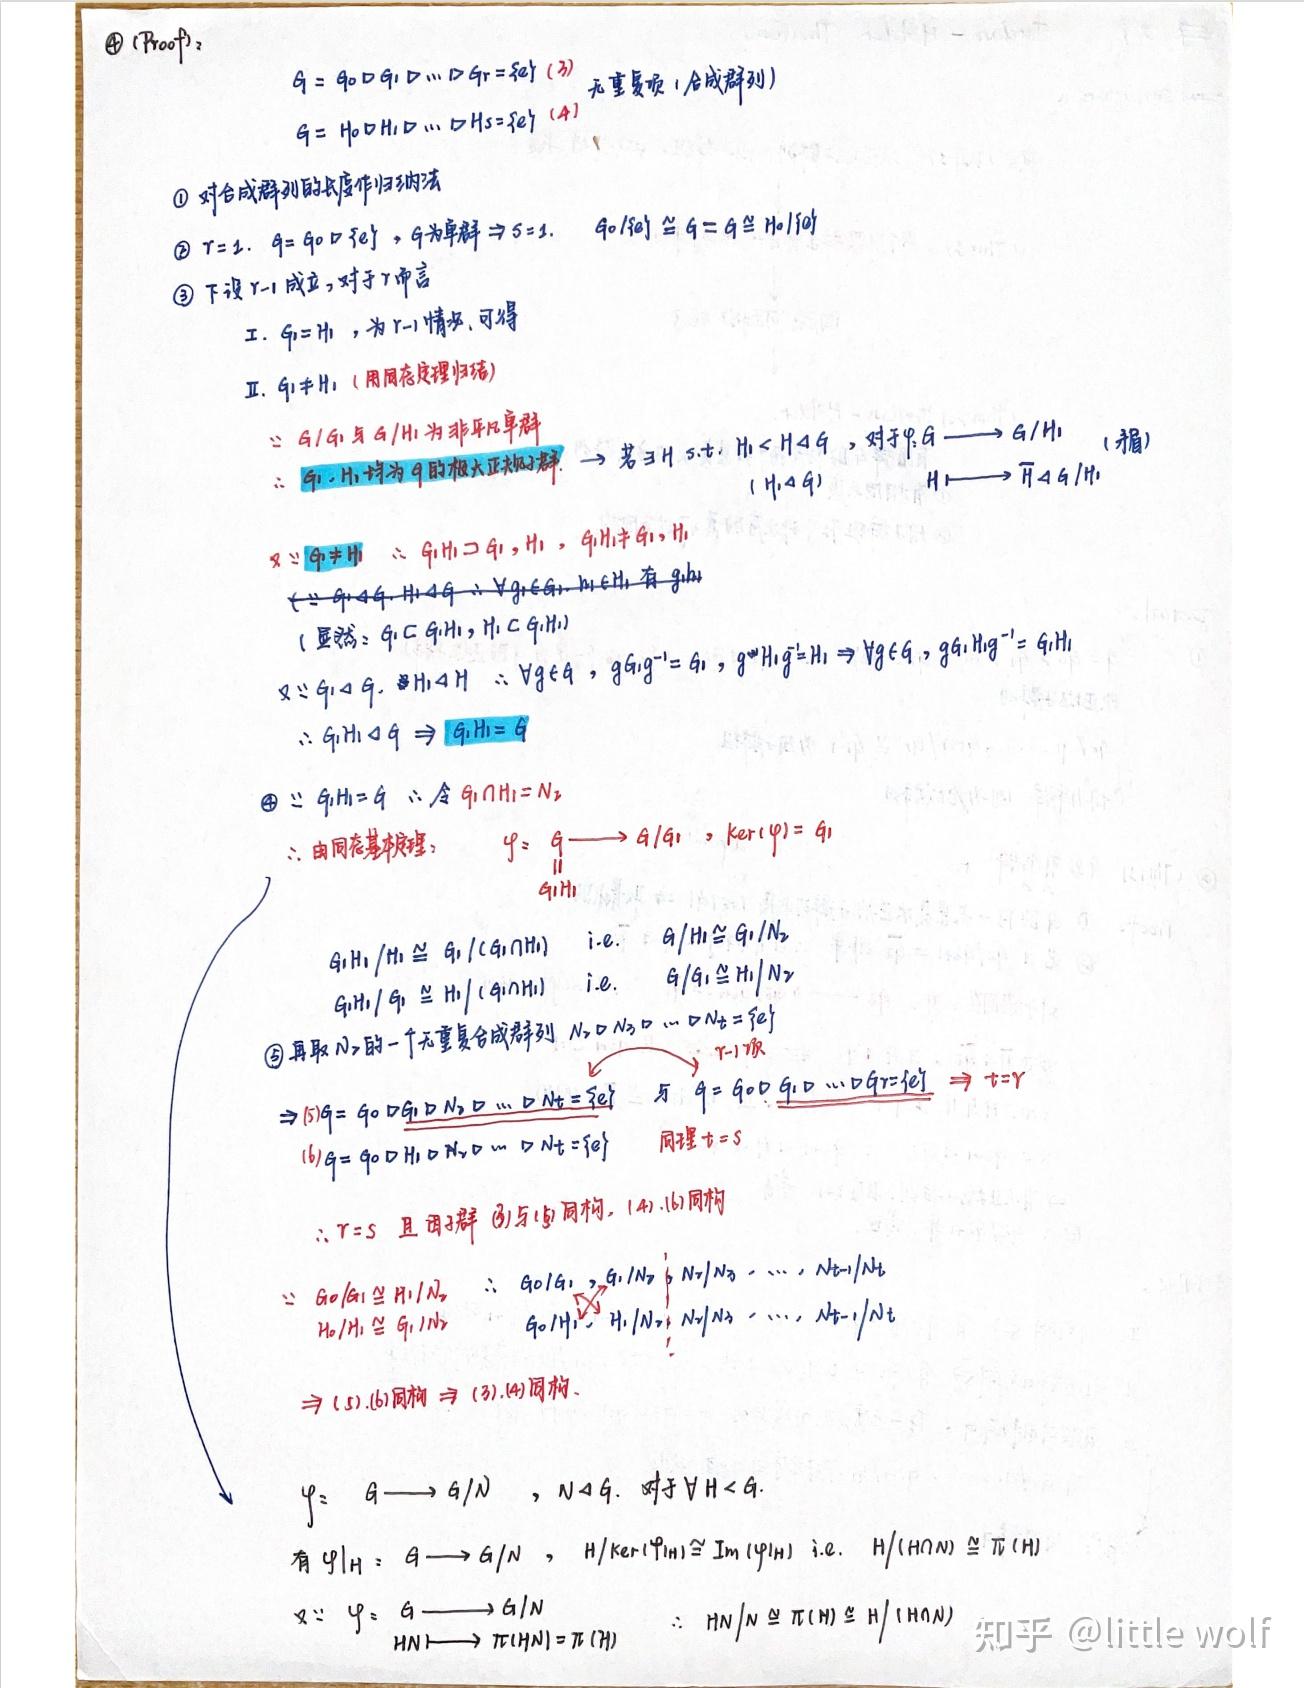 ④ (Proof):
G = G0 ▷ G1 ▷ ⋯ ▷ Gr = {e} (3)
G = H0 ▷ H1 ▷ ⋯ ▷ Hs = {e} (4)
无重复项 (合成群列)
① 对合成群列的长度作归纳法
② r=1. G = G0 ▷ {e}, G为单群 ⇒ s=1. G0/{e} ≅ G = G ≅ H0/{e}
③ 下设 r-1 成立, 对于r而言
I. G1=H1, 为 r-1 情况, 可得
II. G1≠H1 (用同态定理归结)
∵ G/G1 与 G/H1 为非平凡单群
∴ G1, H1 均为G的极大正规子群. → 若∃H s.t. H1 < H ◁ G, 对于φ: G ⟶ G/H1 (矛盾)
(H1 ◁ G) H ⟼ H̅ ◁ G/H1
又∵ G1≠H1 ∴ G1H1 ⊃ G1, H1, G1H1 ≠ G1, H1
(∵ G1◁G. H1◁G ∴ ∀g1∈G1. h1∈H1 有 g1h1
(显然: G1 ⊂ G1H1, H1 ⊂ G1H1)
又∵ G1◁G. H1◁H ∴ ∀g∈G, gG1g⁻¹ = G1, gH1g⁻¹ = H1 ⇒ ∀g∈G, gG1H1g⁻¹ = G1H1
∴ G1H1 ◁ G ⇒ G1H1 = G
④ ∵ G1H1 = G ∴ 令 G1∩H1 = N2
∴ 由同态基本定理: φ: G ⟶ G/G1, Ker(φ) = G1
||
G1H1
G1H1/H1 ≅ G1/(G1∩H1) i.e. G/H1 ≅ G1/N2
G1H1/G1 ≅ H1/(G1∩H1) i.e. G/G1 ≅ H1/N2
⑤ 再取N2的一个无重复合成群列 N2 ▷ N3 ▷ ⋯ ▷ Nt = {e}
r-1项
⇒ (5) G = G0 ▷ G1 ▷ N2 ▷ ⋯ ▷ Nt = {e} 与 G = G0 ▷ G1 ▷ ⋯ ▷ Gr = {e} ⇒ t=r
(6) G = G0 ▷ H1 ▷ N2 ▷ ⋯ ▷ Nt = {e} 同理 t=s
∴ r=s 且 因子群 (3)与(5)同构, (4).(6)同构
∵ G0/G1 ≅ H1/N2 ∴ G0/G1, G1/N2, N2/N3, ⋯, Nt-1/Nt
H0/H1 ≅ G1/N2 G0/H1, H1/N2, N2/N3, ⋯, Nt-1/Nt
⇒ (5).(6)同构 ⇒ (3).(4)同构.
φ: G ⟶ G/N, N◁G. 对于∀H<G.
有 φ|H: G ⟶ G/N, H/Ker(φ|H) ≅ Im(φ|H) i.e. H/(H∩N) ≅ π(H)
又∵ φ: G ⟶ G/N ∴ HN/N ≅ π(H) ≅ H/(H∩N)
HN ⟼ π(HN) = π(H)
知乎 @little wolf